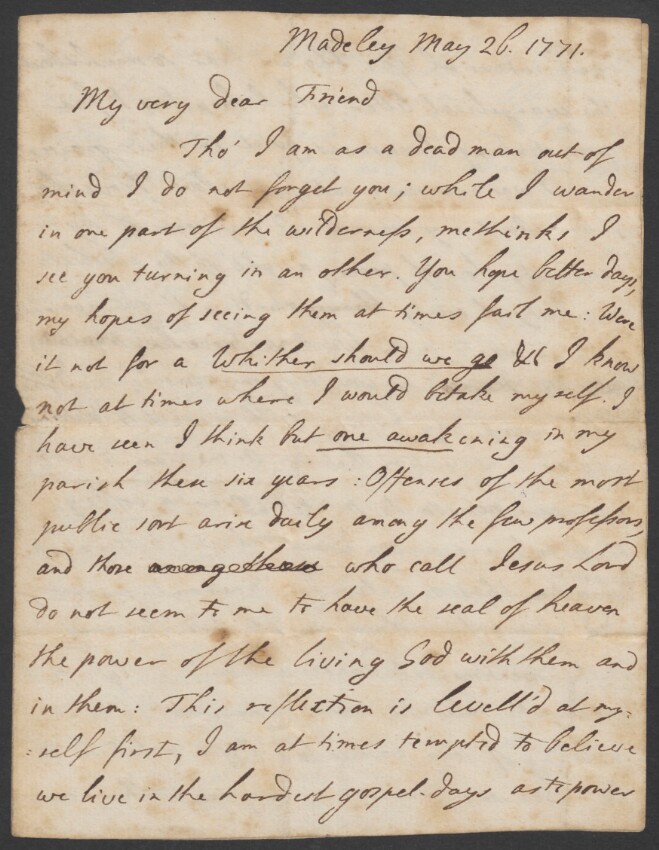 Madeley May 26. 1771.
My very dear Friend
Tho' I am as a dead man out of
mind I do not forget you; while I wander
in one part of the wilderness, methinks I
see you turning in an other. You hope better days,
my hopes of seeing them at times fail me: Were
it not for a Whither should we go &c I know
not at times where I would betake my self. I
have seen I think but one awakening in my
parish these six years: Offenses of the most
public sort arise daily among the few professors,
and those who call Jesus Lord
do not seem to me to have the seal of heaven
the power of the living God with them and
in them: This reflextion is levell'd at my-
:self first, I am at times tempted to believe
we live in the hardest gospel-days as to power